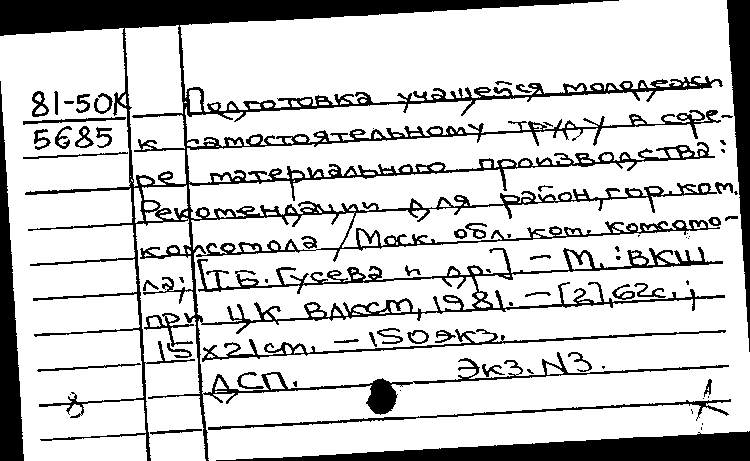 81-50К Подготовка учащейся молодежи
5685 к самостоятельному труду в сфе-
ре материального производства:
Рекомендации для район, гор. ком.
комсомола / Моск. обл. ком. комсомо-
ла; [Т.Б. Гусева и др.]. – М. : ВКШ
при ЦК ВЛКСМ, 1981. – [2], 62с. ;
15 х 21см. – 150 экз.
ДСП. Экз. N3.
8